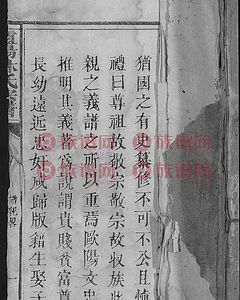 猶國之有史纂修不可不公且慎
禮曰尊祖故敬宗敬宗故收族此
親之義譜之所以重焉歐陽文忠
推明其義說謂貴賤貧富尊
長幼遠近忠奸咸歸版籍生娶子
林氏宗譜